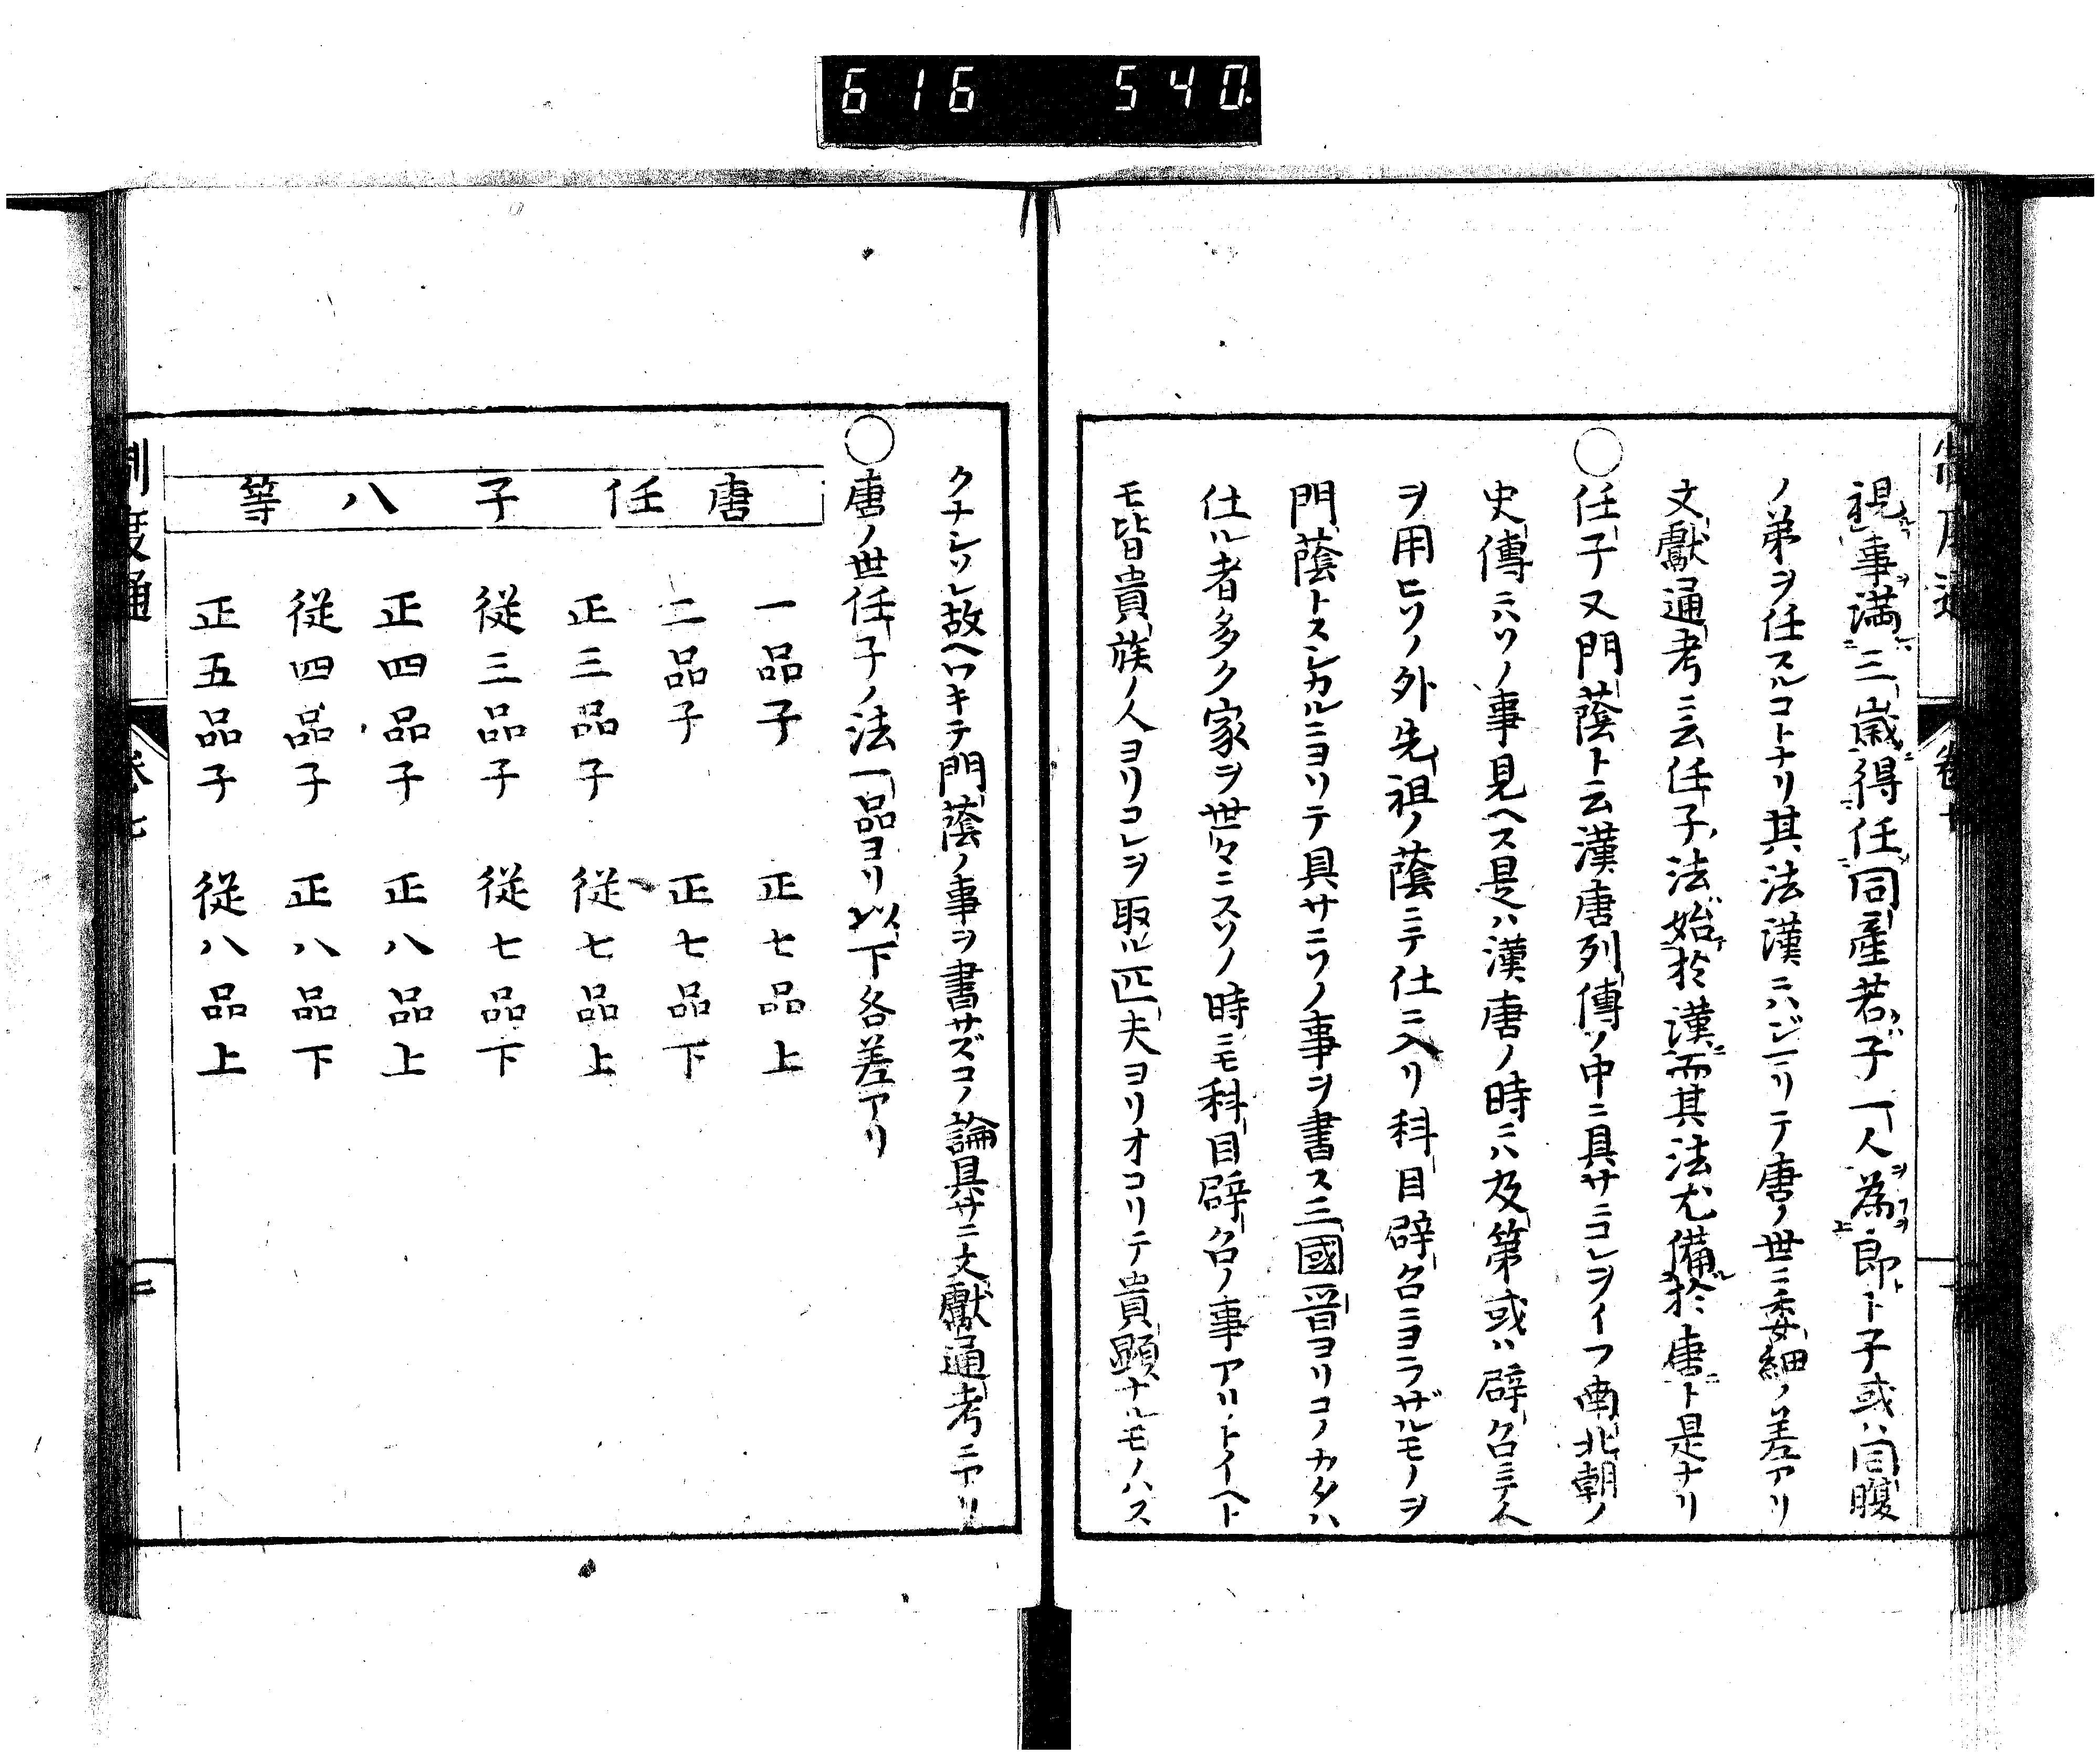 616 540.
視事満三歳得任同産若子一人為郎ト子或ハ同腹
ノ弟ヲ任スルコトナリ其法漢ニハジマリテ唐ノ世ニ委細ノ差アリ
文獻通考ニ云任子法始於漢而其法尤備於唐ト是ナリ
○任子又門蔭ト云漢唐列傳ノ中ニ具サニコレヲイフ南北朝ノ
史傳ニハソノ事見ヘス是ハ漢唐ノ時ニハ及第或ハ辟召ニテ人
ヲ用ヒソノ外先祖ノ蔭ニテ仕ニ入リ科目辟召ニヨラザルモノヲ
門蔭トスシカルニヨリテ具サニソノ事ヲ書ス三國晉ヨリコノカタハ
仕ル者多ク家ヲ世々ニスソノ時ニモ科目辟召ノ事アリトイヘト
モ皆貴族ノ人ヨリコレヲ取ル匹夫ヨリオコリテ貴顕ナルモノハス
クナシソレ故ヘワキテ門蔭ノ事ヲ書サズコノ論具サニ文獻通考ニアリ
○唐ノ世任子ノ法一品ヨリ以下各差アリ
唐任子八等
一品子 正七品上
二品子 正七品下
正三品子 従七品上
従三品子 従七品下
正四品子 正八品上
従四品子 正八品下
正五品子 従八品上
制度通 巻七 二